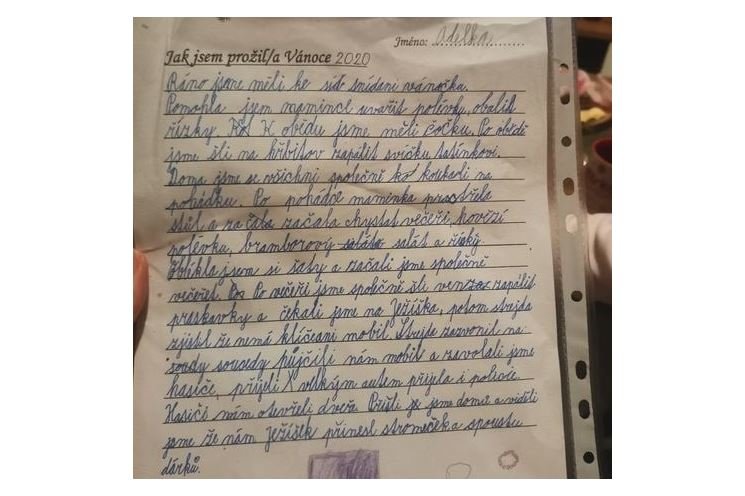 Jméno: Adelka
Jak jsem prožil/a Vánoce 2020
Ráno jsme měli ke snídani vánočka.
Pomohla jsem mamince uvařit polévku, obalit
řízky. K obědu jsme měli čočku. Po obědě
jsme šli na hřbitov zapálit svíčku tatínkovi.
Doma jsme se všichni společně ko koukali na
pohádku. Po pohádce maminka prostřela
stůl a začala chystat večeři, hovězí
polévku, bramborový salát a řízky.
Oblíkla jsem si šaty a začali jsme společně
večeřet. Po večeři jsme společně šli ven zapálit
prskavky a čekali jsme na Ježíška, potom strejda
zjistil že nemá klíče ani mobil. Strejda zazvonil na
soudy soucedy půjčili nám mobil a zavolali jsme
hasiče, přijeli s velkým autem přijela i policie.
Hasiči nám otevřeli dveře. Přišli jsme domů a viděli
jsme že nám Ježíšek přinesl stromeček a spoustu
dárků.